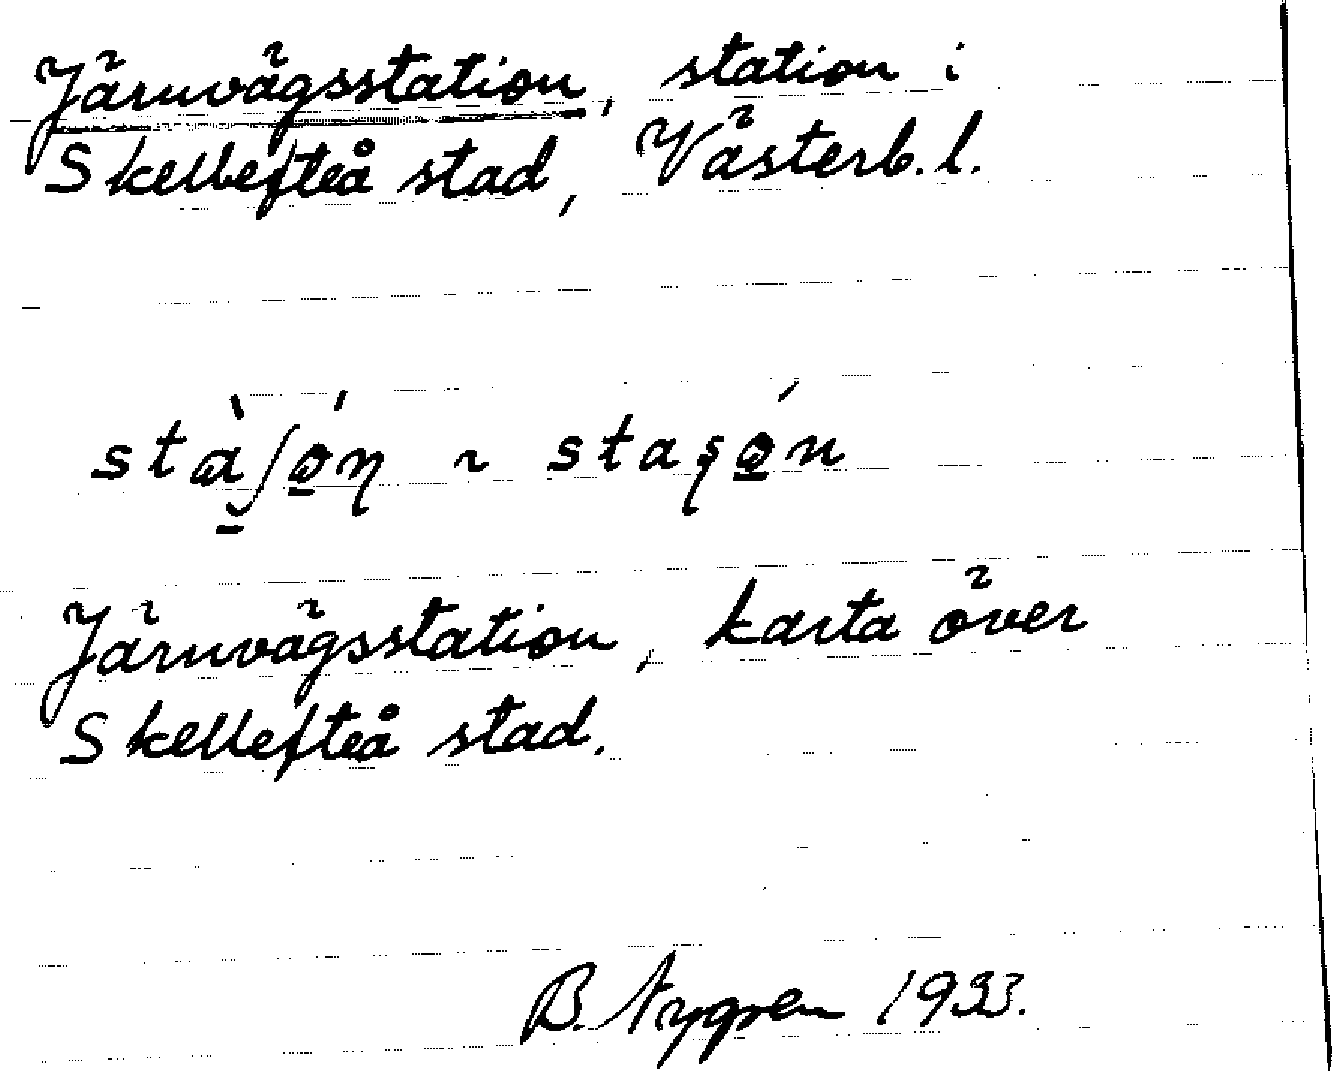 Järnvägsstation, station i
Skellefteå stad, Västerb. l.
stàʃǫ́n ~ stasǫ́n
Järnvägsstation, karta över
Skellefteå stad.
B. Nygren 1933.